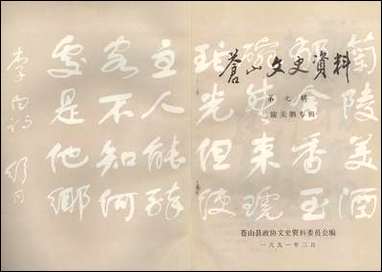 蒼山文史資料
第七辑
专辑
苍山县政协文史资料委员会编
一九九一年
蘭陵美酒
鬱金香玉
碗盛来琥
珀光但使
主人能醉
客不知何
處是他鄉
李白詩 舒同